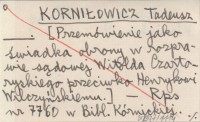 KORNIŁOWICZ Tadeusz
———. [Przemówienie jako
świadka obrony w rozpra-
wie sądowej Witolda Czarto-
ryskiego przeciwko Henrykowi
Wilczyńskiemu]. — Rps
nr 7760 w Bibl. Kórnickiej.